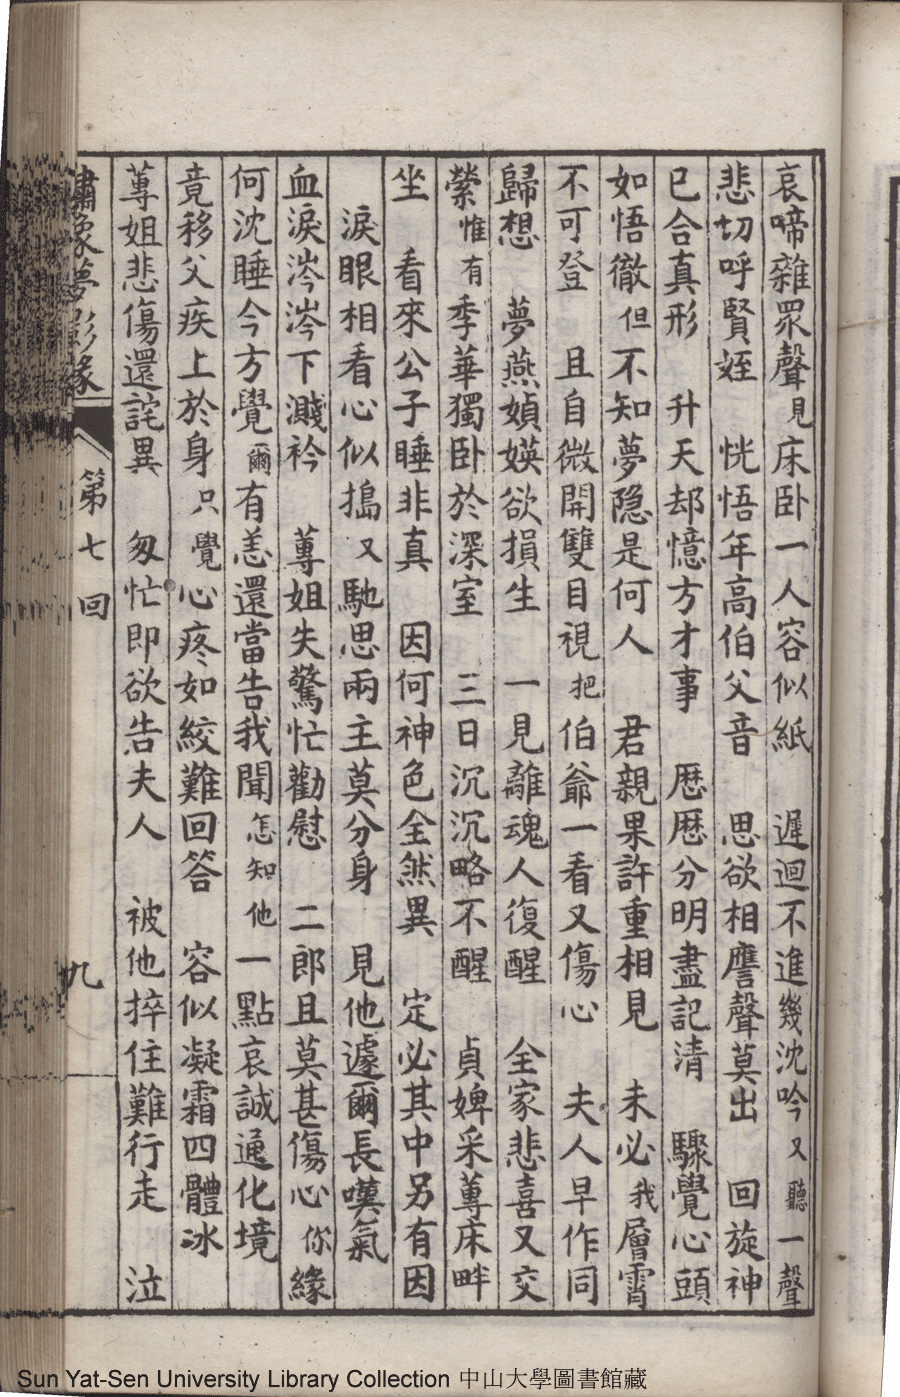 哀啼雜眾聲見床卧一人容似紙　遲迴不進幾沈吟又聽一聲
悲切呼賢姪　恍悟年高伯父音　思欲相譍聲莫出　回旋神
已合真形　升天却憶方才事　歷歷分明盡記清　驟覺心頭
如悟徹但不知夢隐是何人　君親果許重相見　未必我層霄
不可登　且自微開雙目視把伯爺一看又傷心　夫人早作同
歸想　夢燕媜媖欲損生　一見離魂人復醒　全家悲喜又交
縈惟有季華獨卧於深室　三日沉沉略不醒　貞婢采蓴床畔
坐　看來公子睡非真　因何神色全然異　定必其中另有因
淚眼相看心似搗又馳思兩主莫分身　見他遽爾長嘆氣
血淚涔涔下濺衿　蓴姐失驚忙勸慰　二郎且莫甚傷心你緣
何沈睡今方覺爾有恙還當告我聞怎知他一點哀誠通化境
竟移父疾上於身只覺心疼如絞難回答　容似凝霜四體冰
蓴姐悲傷還詫異　匆忙即欲告夫人　被他捽住難行走　泣
繡像夢影緣　第七回　九
Sun Yat-Sen University Library Collection 中山大學圖書館藏